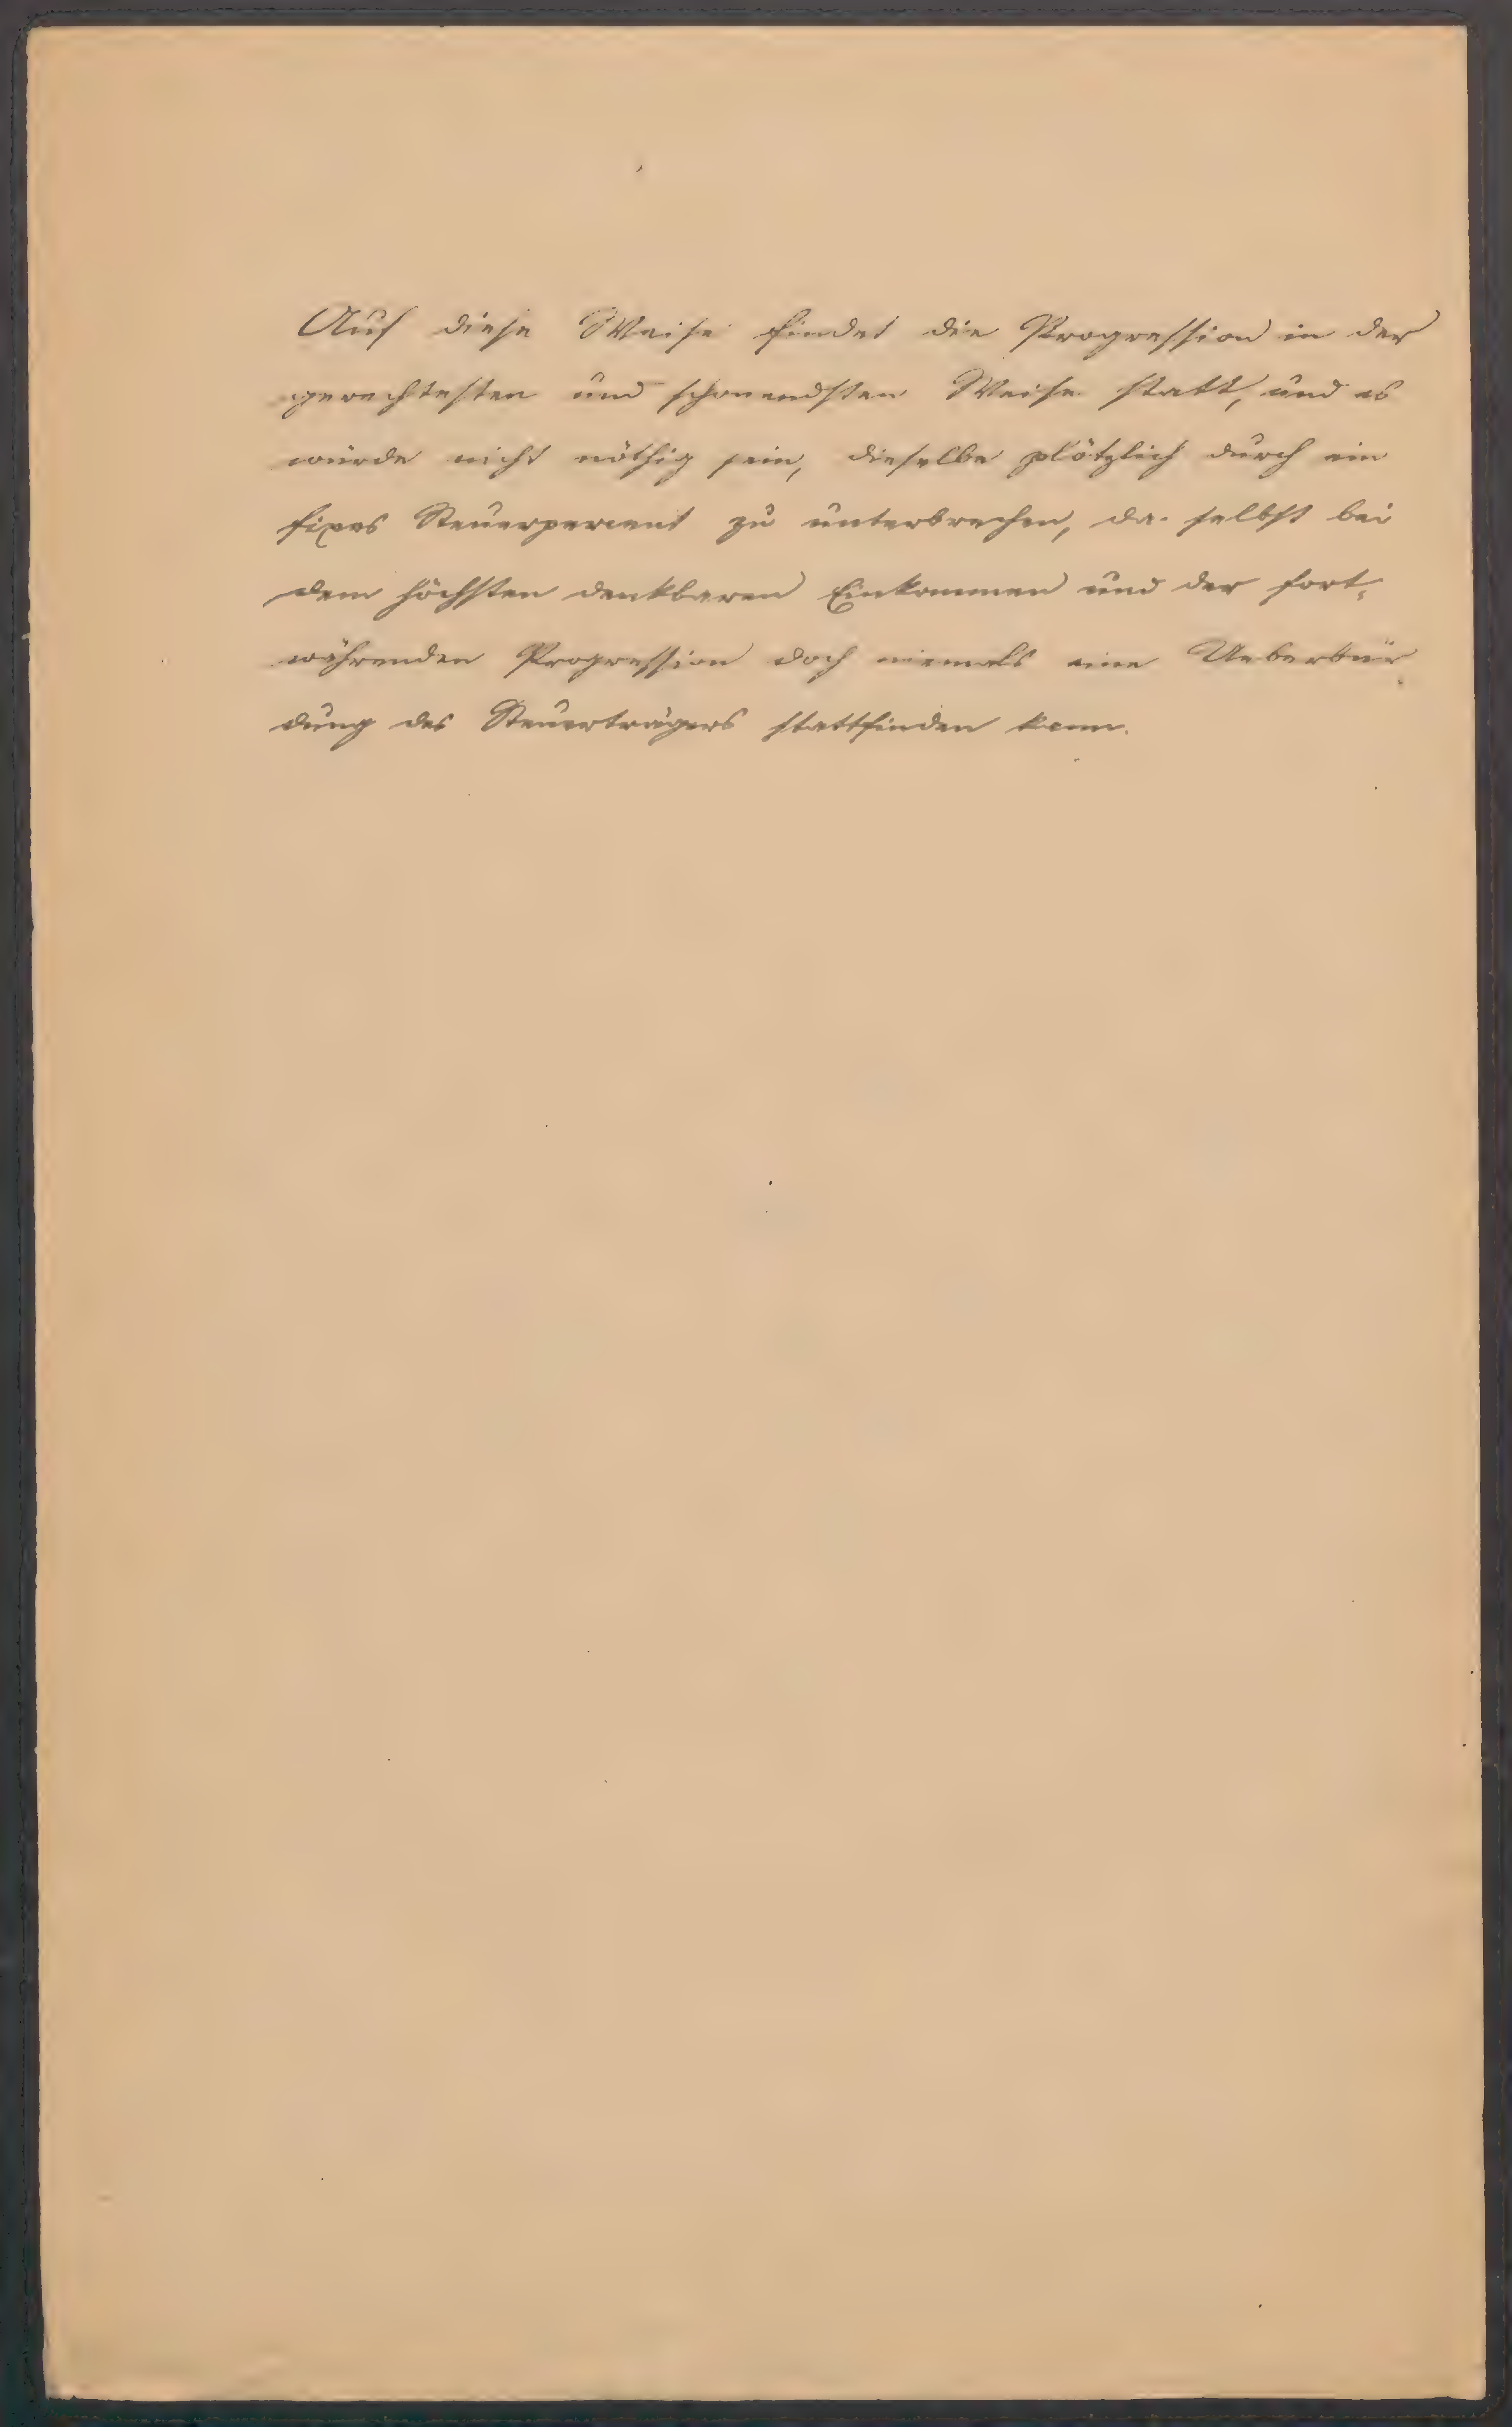 Auf diese Weise findet die Progression in der
gerechtesten und schonendsten Weise statt, und es
würde nicht nöthig sein, dieselbe plötzlich durch ein
fixes Steuerpercent zu unterbrechen, da selbst bei
dem höchsten denkbaren Einkommen und der fort-
währenden Progression doch niemals eine Ueberbür
dung des Steuerträgers stattfinden kann.